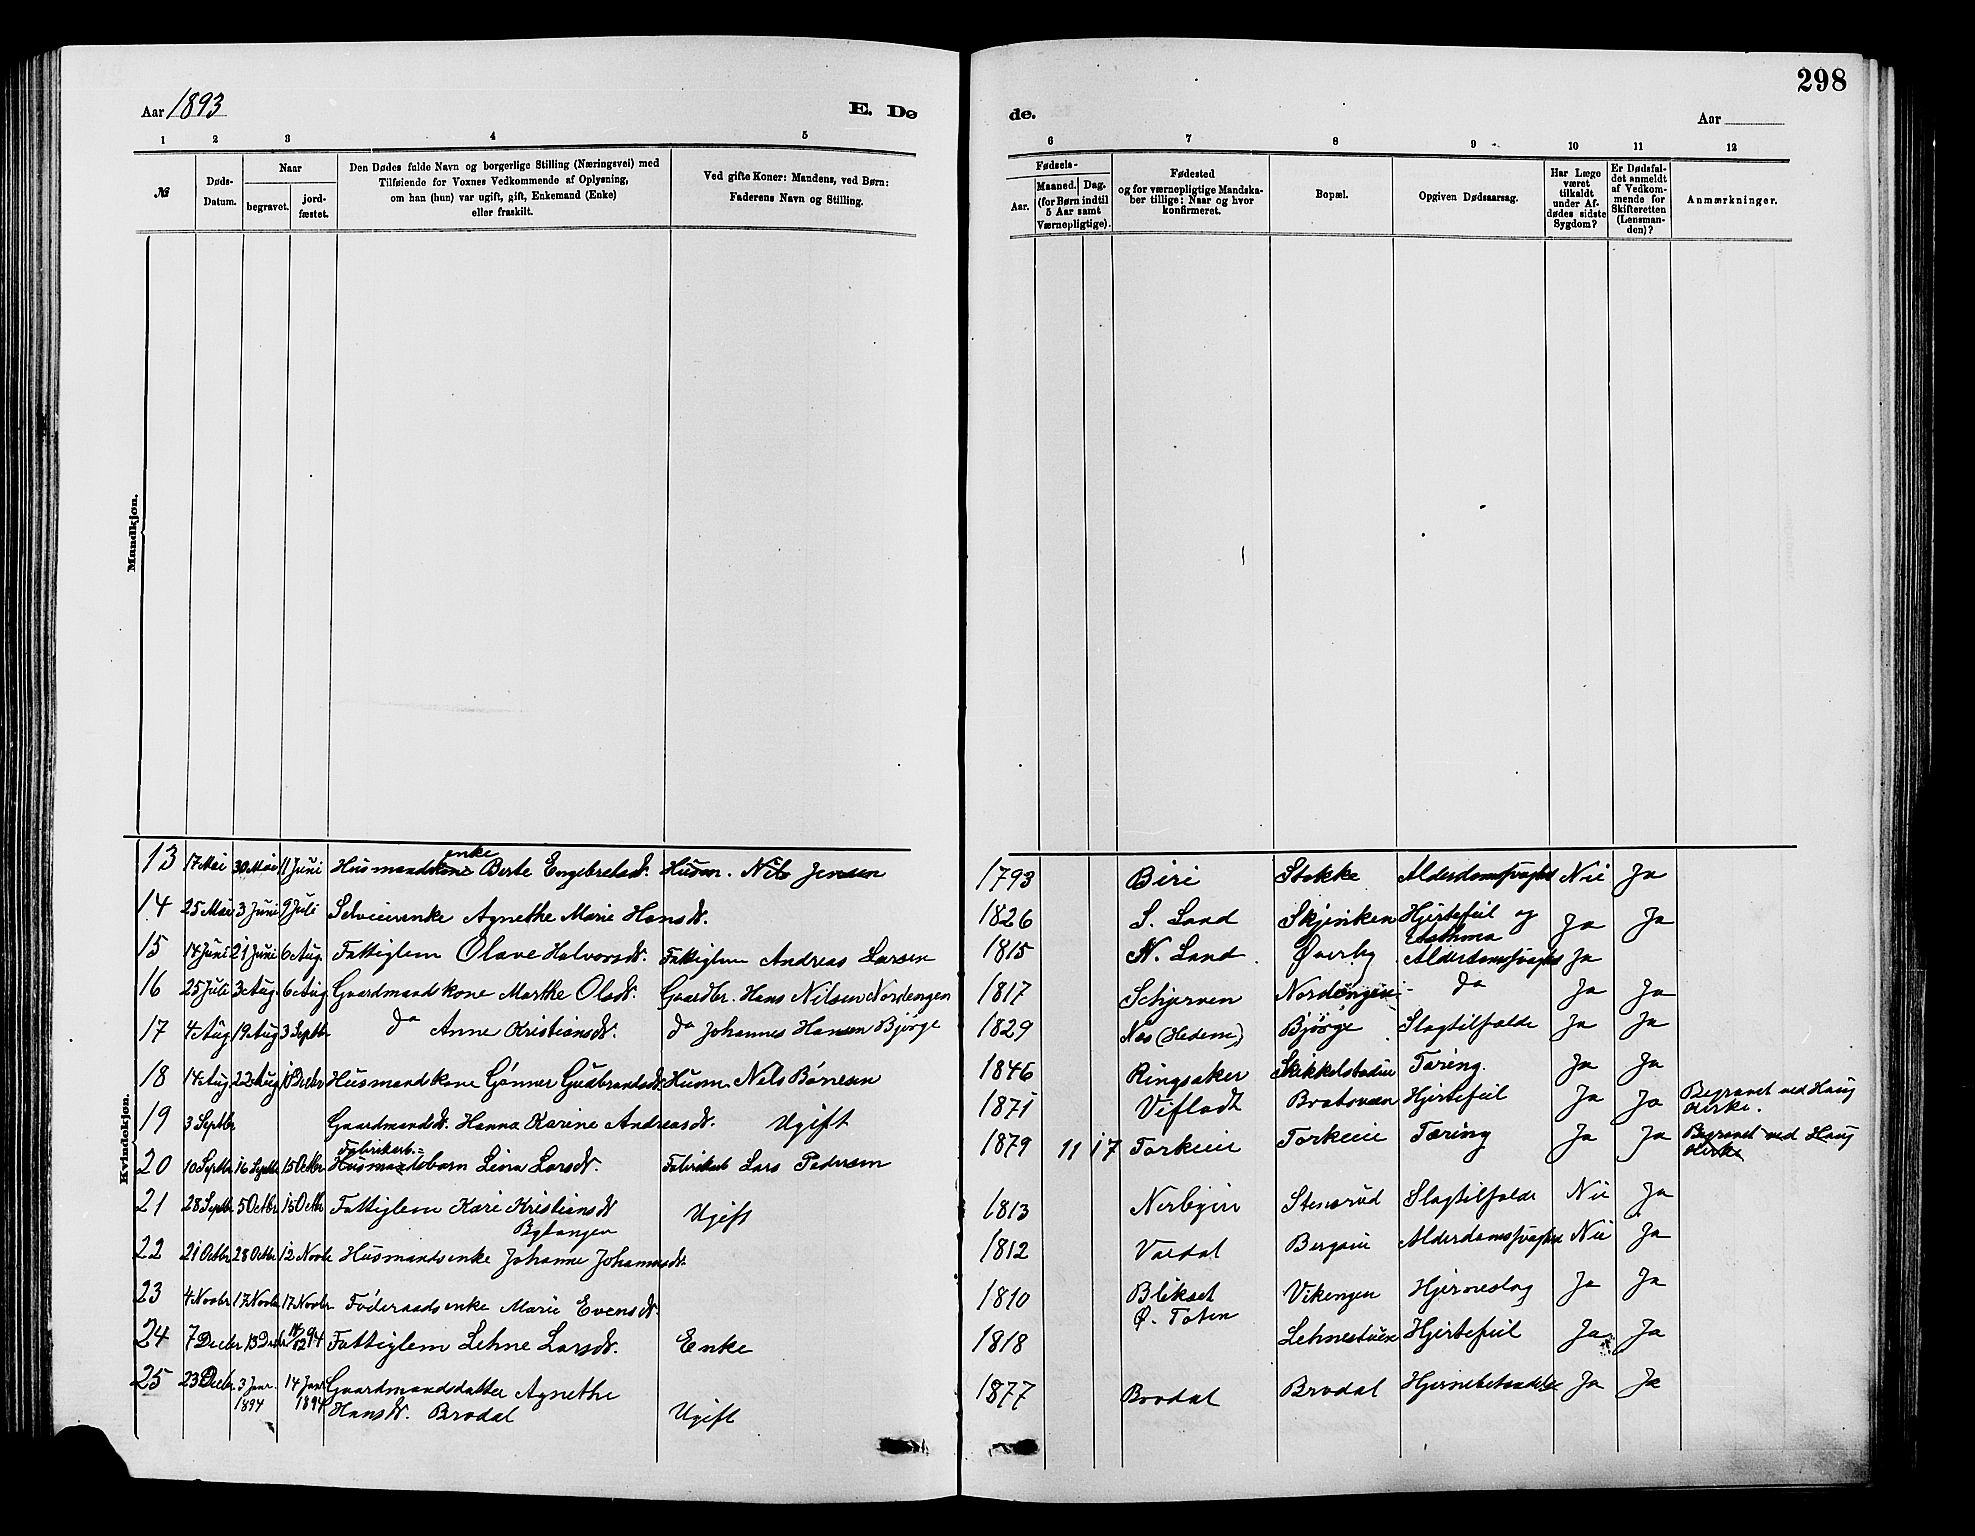 298
Aar 1893
E. Dø
de.
Aar
1 2 3 4 5
6 7 8 9 10 11 12
№
Døds-Datum.
Naar
begravet.
jord-fæstet.
Den Dødes fulde Navn og borgerlige Stilling (Næringsvei) med
Tilføiende for Voxnes Vedkommende af Oplysning,
om han (hun) var ugift, gift, Enkemand (Enke)
eller fraskilt.
Ved gifte Koner: Mandens, ved Børn:
Faderens Navn og Stilling.
Fødsels-
Aar.
Maaned. Dag.
(for Børn indtil
5 Aar samt
Værnepligtige).
Fødested
og for værnepligtige Mandska-
ber tillige: Naar og hvor
konfirmeret.
Bopæl.
Opgiven Dødsaarsag.
Har Læge
været
tilkaldt
under Af-
dødes sidste
Sygdom?
Er Dødsfal-
det anmeldt
af Vedkom-
mende for
Skifteretten
(Lensman-
den)?
Anmærkninger.
Mandkjøn.
Kvindekjøn.
13 17 Mai 30 Mai 11 Juni Husmandskone enke Berte Engebretsd. Husm. Nils Jensen 1793 Biri Stokke Alderdomssvaghed Nei Ja
14 25 Mai 3 Juni 9 Juli Selveierenke Agnethe Marie Hansd. 1826 S. Land Skjeriken Hjertefeil og Asthma Ja Ja
15 14 Juni 21 Juni 6 Aug. Fattiglem Olave Halvorsd. Fattiglem Andreas Larsen 1815 N. Land Øverby Alderdomssvaghed Ja
16 25 Juli 3 Aug. 6 Aug Gaardmandskone Marthe Olsd. Gaardbr. Hans Nilsen Nordengen 1817 Schjerven Nordengen do Ja Ja
17 4 Aug 19 Aug 3 Septbr do Anne Kristiansd. do Johannes Hansen Bjørge 1829 Næs (Hedem) Bjørge Slagtilfælde Ja Ja
18 14 Aug 22 Aug 10 Decbr Husmandskone Gønner Gudbrandsd. Husm. Nils Børresen 1846 Ringsaker Skikkelstadeie Tæring. Ja Ja
19 3 Septbr Gaardmandsd. Hanna Karine Andreasd. Ugift 1871 Vifladt Bratoveen Hjertefeil Ja Ja Begravet ved Haug Kirke.
20 10 Septbr 16 Septbr 15 Octbr Husmandsbarn Fabrikarb.- Lina Larsd. Fabrikarb Lars Pedersen 1879 11 17 Torkeie Torkeie Tæring Ja Ja Begravet ved Haug Kirke
21 28 Septbr 5 Octbr 15 Octbr Fattiglem Kari Kristiansd Bytangen Ugift 1813 Nerbyin Stensrud Slagtilfælde Nei Ja
22 21 Octbr 28 Octbr 12 Novbr Husmandsenke Johanne Johannesd. 1812 Vardal Bergseie Alderdomssvaghed Nei Ja
23 4 Novbr 17 Novbr 17 Novbr Føderaadsenke Marie Evensd. 1810 Blikset Ø. Toten Vikengen Hjerneslag Ja Ja
24 7 Decbr 13 Decbr 94 Fattiglem Lehne Larsd. Enke 1818 Lehnestuen Hjertefeil Ja Ja
25 23 Decbr 3 Janr. 1894 14 Janr 1894 Gaardmandsdatter Agnethe
Hansd. Brodal Ugift 1877 Brodal Brodal Hjernebetændelse Ja Ja